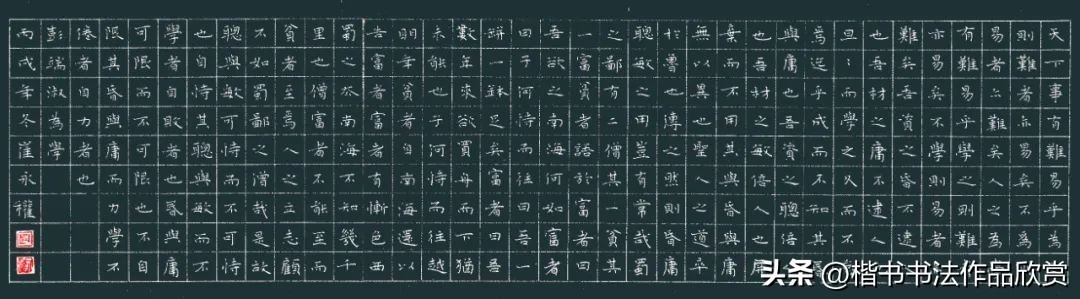 天下事有難易乎為
則難者亦易矣不為
易者亦難矣人之為
有難易乎學之則難
亦易矣不學則易者
難矣吾資之昏不逮
也吾材之庸不逮人
旦〻而學之久而不
焉迄乎成而不知其
與庸也吾資之聰倍
也吾材之敏倍人也屏
棄而不用其與昏與庸
無以異也聖人之道卒
於魯也傳之然則昏庸
聰敏之用豈有常哉蜀
之鄙有二僧其一貧其
一富貧者語於富者曰
吾欲之南海何如富者
曰子何恃而往曰吾一
缾一鉢足矣富者曰吾
數年來欲買舟而下猶
未能也子何恃而往越
明年貧者自南海還以
告富者富者有慚色西
蜀之去南海不知幾千
里也僧富者不能至而
貧者至焉人之立志顧
不如蜀鄙之僧哉是故
聰與敏可恃而不可恃
也自恃其聰與敏而不
學者自敗者也昏與庸
可限而不可限也不自
限其昏與庸而力學不
倦者自力者也
彭端淑為學
丙戌年冬崔永權
头条@楷书书法作品欣赏